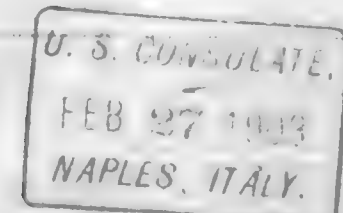 U. S. CONSULATE.
FEB 27
NAPLES, ITALY.